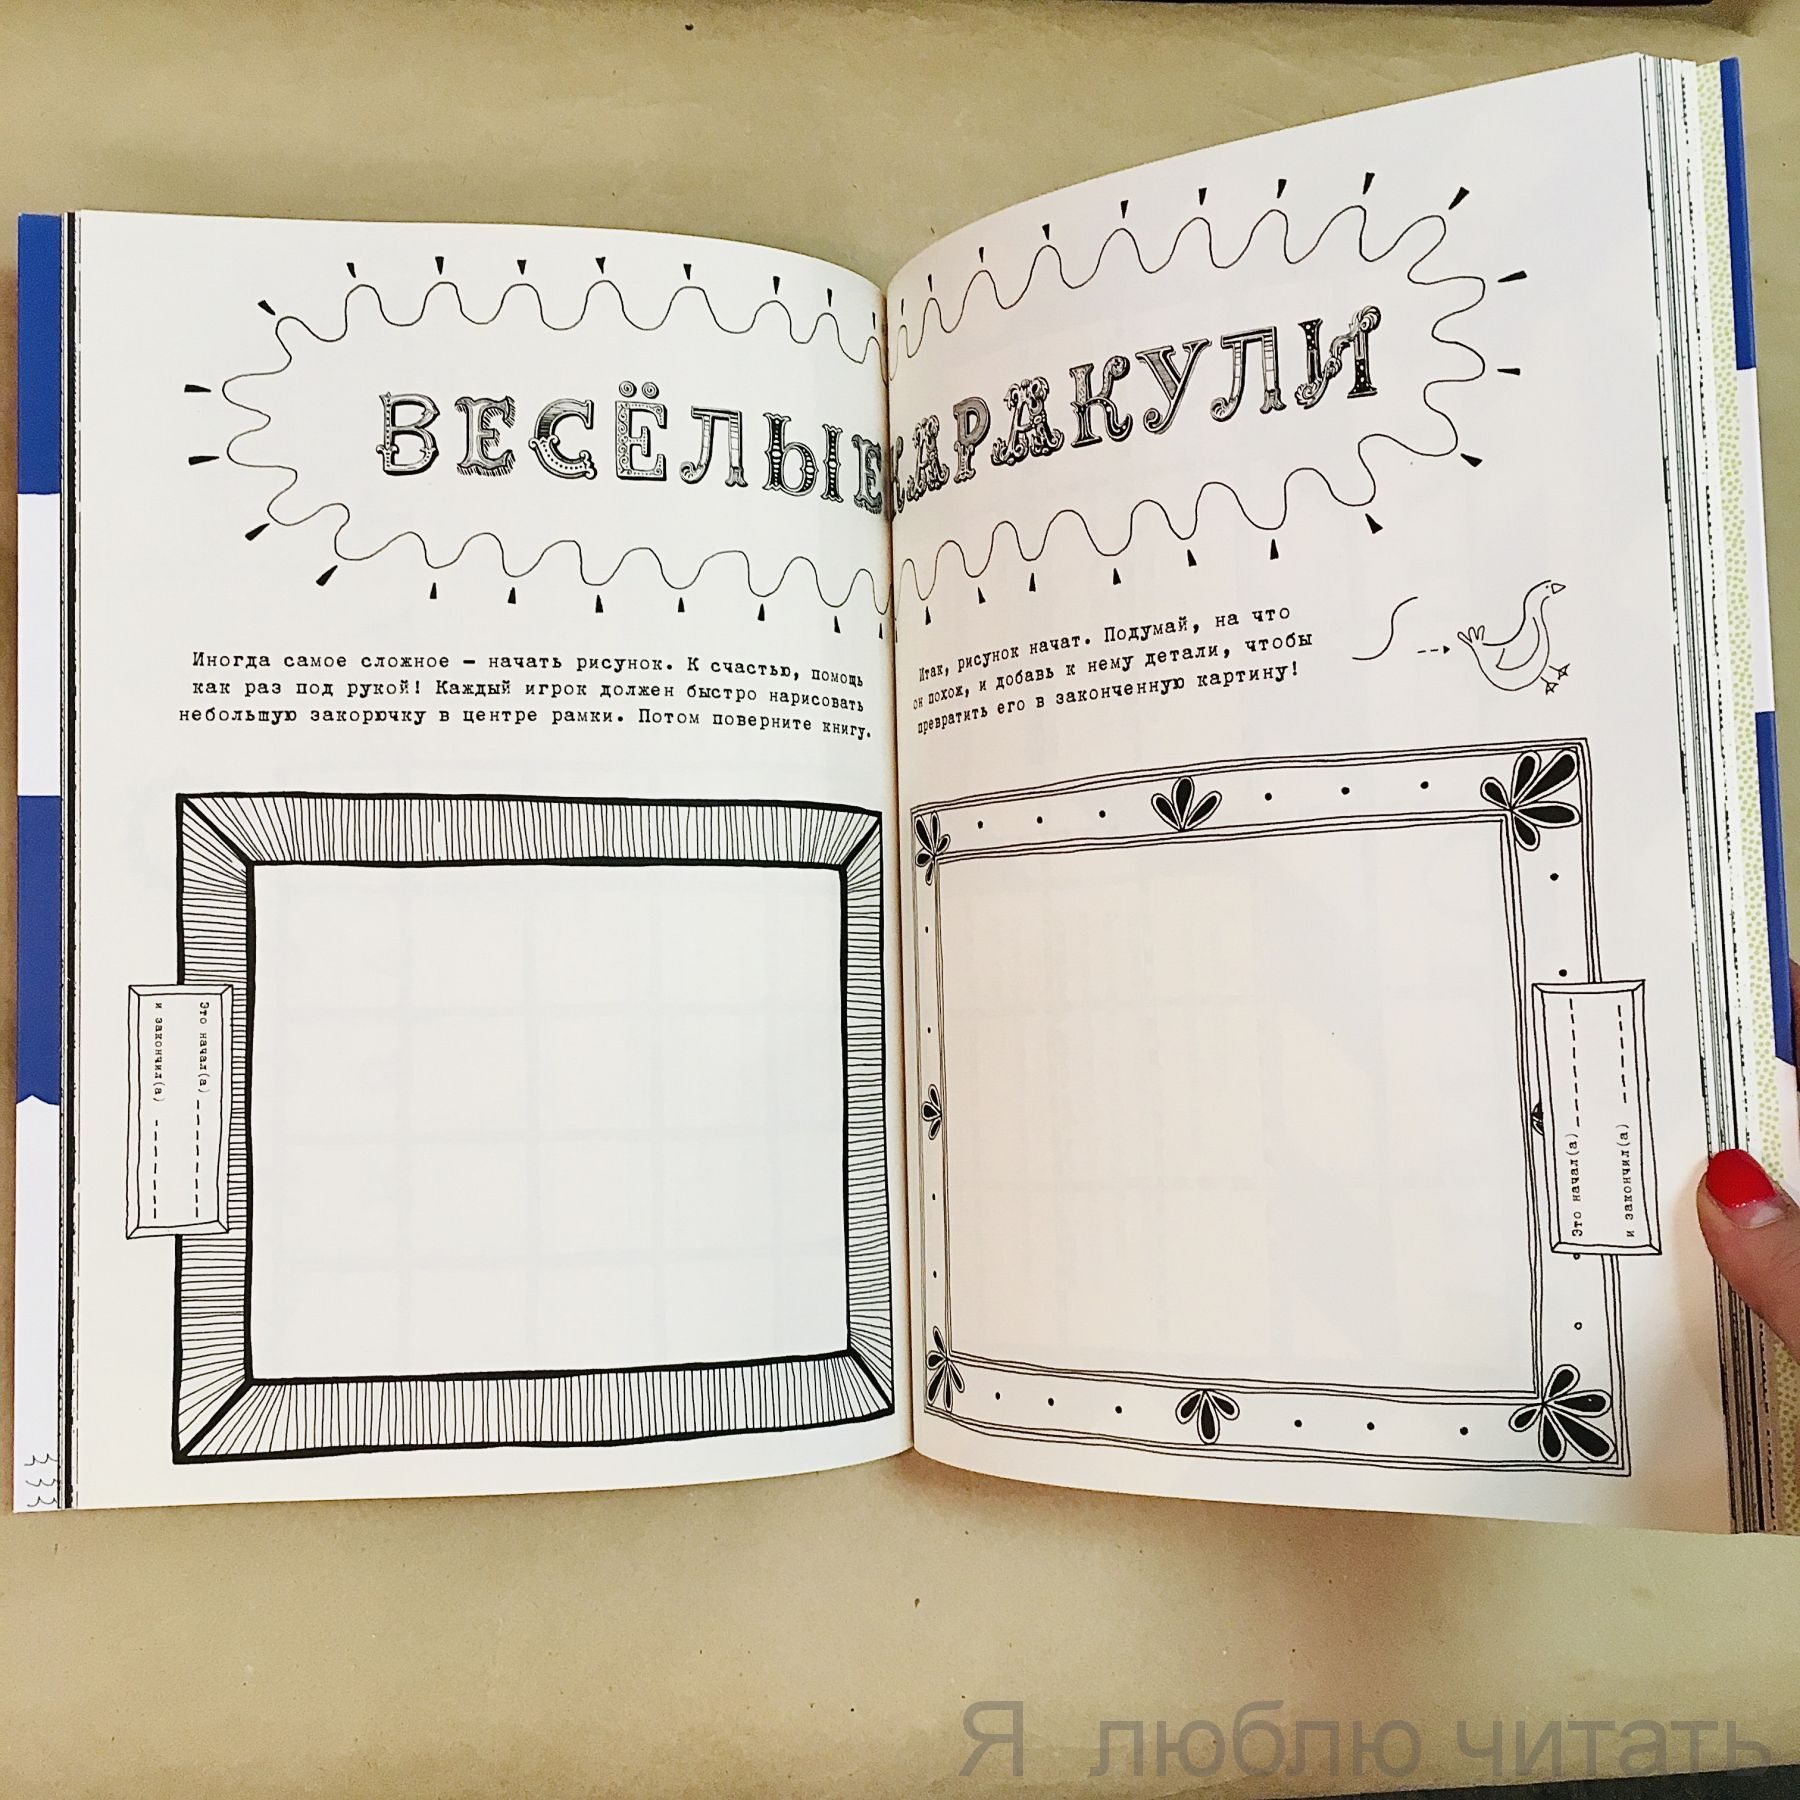 ВЕСЁЛЫЕ КАРАКУЛИ
Иногда самое сложное – начать рисунок. К счастью, помощь
как раз под рукой! Каждый игрок должен быстро нарисовать
небольшую закорючку в центре рамки. Потом поверните книгу.
Итак, рисунок начат. Подумай, на что
он похож, и добавь к нему детали, чтобы
превратить его в законченную картину!
Это начал(а)
и закончил(а)
Это начал(а)
и закончил(а)
Я люблю читать